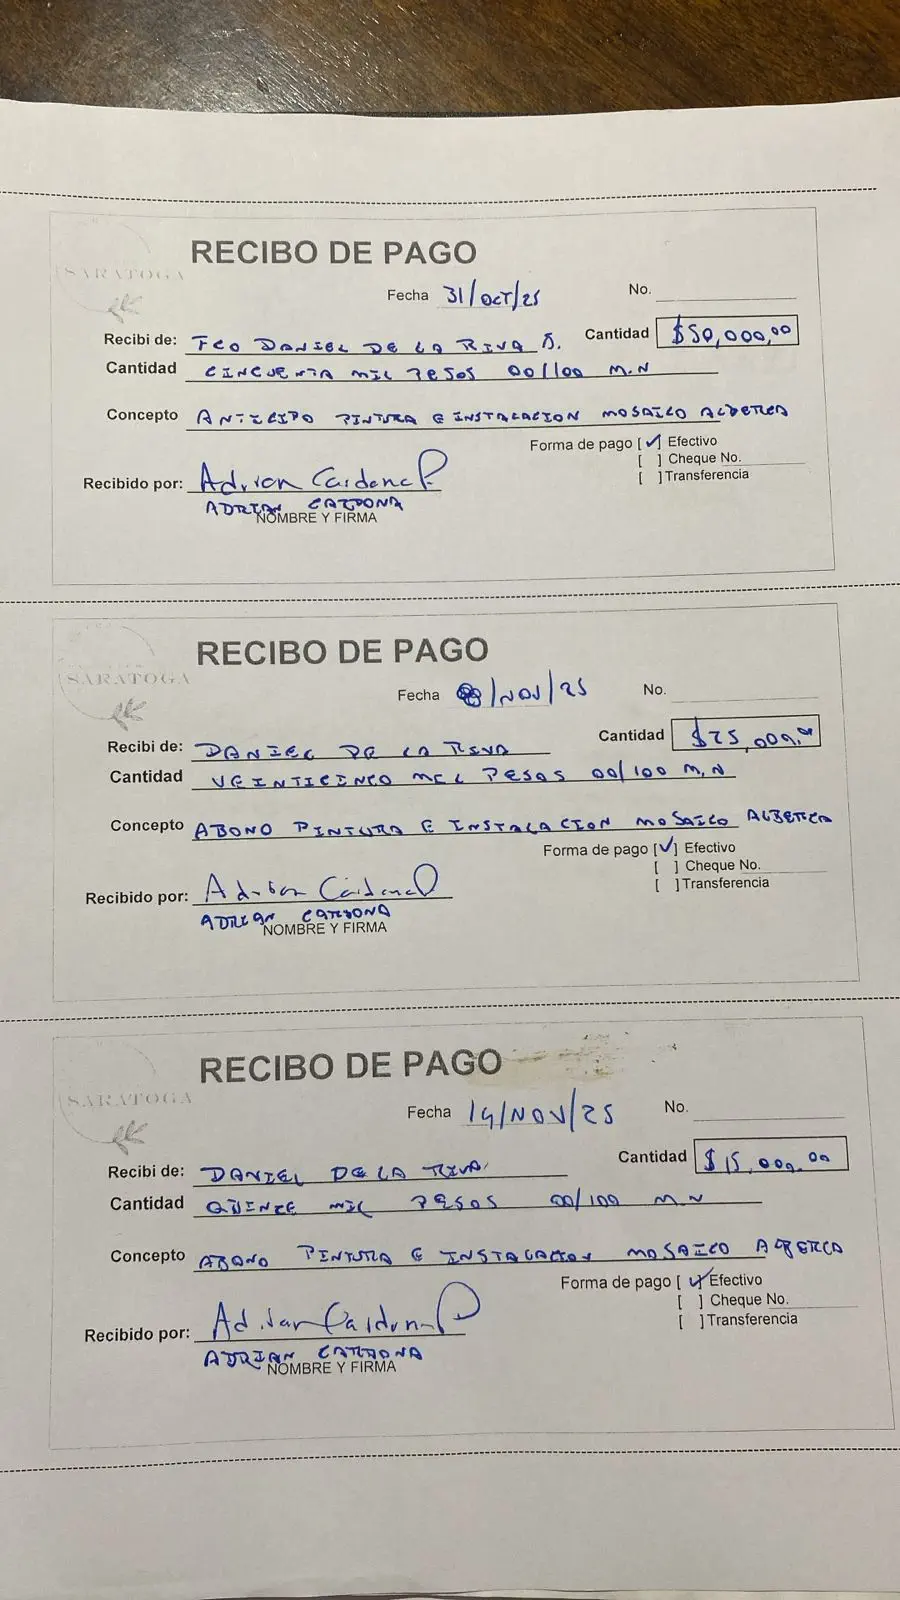 SARATOGA
RECIBO DE PAGO
Fecha 31/OCT/25
No.
Recibi de: FCO DANIEL DE LA RIVA Cantidad $50,000,00
Cantidad CINCUENTA MIL PESOS 00/100 M.N
Concepto ANTICIPO PINTURA E INSTALACION MOSAICO ALBERCA
Forma de pago [✓] Efectivo
[ ] Cheque No.
[ ] Transferencia
Recibido por: Adrian Cardona
ADRIAN CARDONA
NOMBRE Y FIRMA
SARATOGA
RECIBO DE PAGO
Fecha 8/NOV/25
No.
Recibi de: DANIEL DE LA RIVA Cantidad $25,000.00
Cantidad VEINTICINCO MIL PESOS 00/100 M.N
Concepto ABONO PINTURA E INSTALACION MOSAICO ALBERCA
Forma de pago [✓] Efectivo
[ ] Cheque No.
[ ] Transferencia
Recibido por: Adrian Cardona
ADRIAN CARDONA
NOMBRE Y FIRMA
SARATOGA
RECIBO DE PAGO
Fecha 14/NOV/25
No.
Recibi de: DANIEL DE LA RIVA Cantidad $15,000.00
Cantidad QUINCE MIL PESOS 00/100 M N
Concepto ABONO PINTURA E INSTALACION MOSAICO ALBERCA
Forma de pago [✓] Efectivo
[ ] Cheque No.
[ ] Transferencia
Recibido por: Adrian Cardona
ADRIAN CARDONA
NOMBRE Y FIRMA